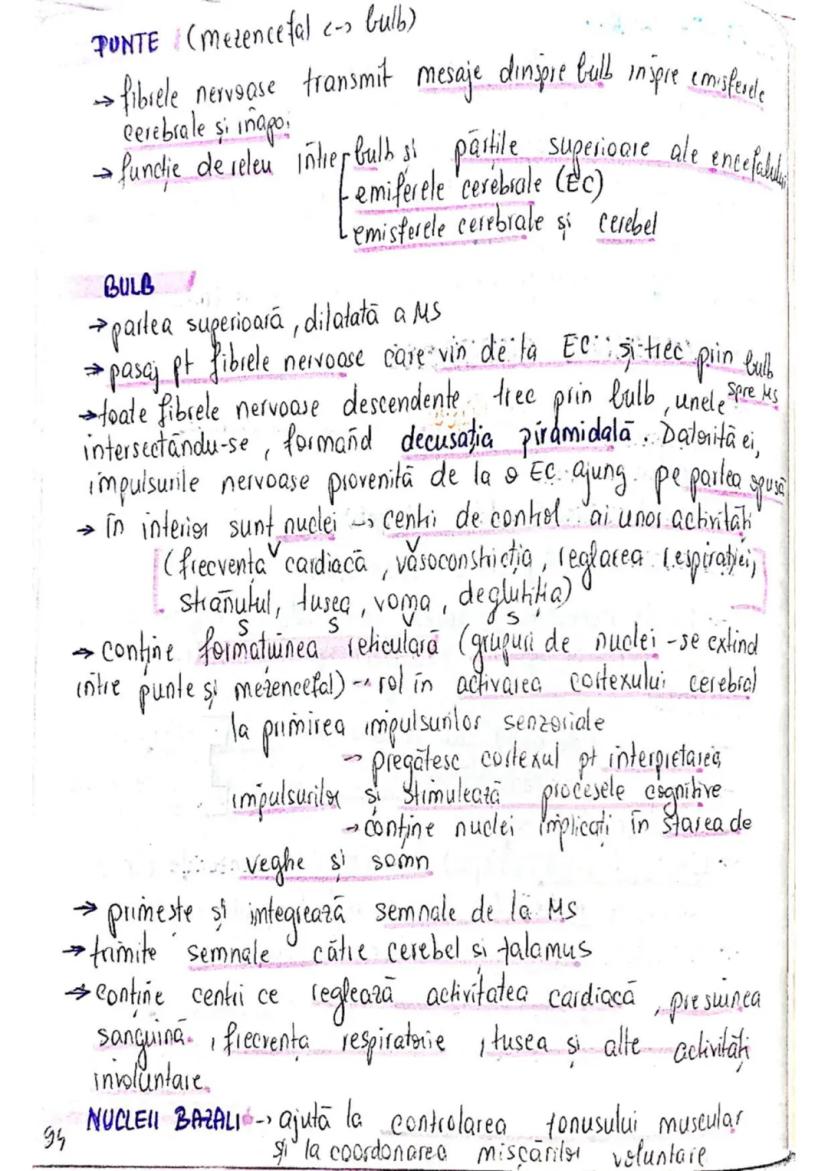 PUNTE (mezencefal <-> bulb)
→ fibrele nervoase transmit mesaje dinspre bulb înspre emisferele
cerebrale și înapoi
→ funcție de releu între bulb și părțile superioare ale encefalului
emiferele cerebrale (EC)
emisferele cerebrale și cerebel
BULB
→ partea superioară, dilatată a MS
→ pasaj pt fibrele nervoase care vin de la EC și trec prin bulb
spre MS
→ toate fibrele nervoase descendente trec prin bulb, unele
intersectându-se, formând decusația piramidală. Datorită ei,
impulsurile nervoase provenită de la o EC ajung pe partea opusă
→ în interior sunt nuclei → centri de control ai unor activități
(frecvența cardiacă, vasoconstricția, reglarea respirației,
strănutul, tusea, voma, deglutiția)
→ conține formațiunea reticulară (grupuri de nuclei - se extind
între punte și mezencefal) → rol în activarea cortexului cerebral
la primirea impulsurilor senzoriale
→ pregătesc cortexul pt interpretarea
impulsurilor și stimulează procesele cognitive
→ conține nuclei implicați în starea de
veghe și somn
→ primește și integrează semnale de la MS
→ trimite semnale către cerebel si talamus
→ conține centri ce reglează activitatea cardiacă, presiunea
sanguină, frecvența respiratorie, tusea și alte activități
involuntare.
NUCLEII BAZALI → ajută la controlarea tonusului muscular
și la coordonarea mișcărilor voluntare
94